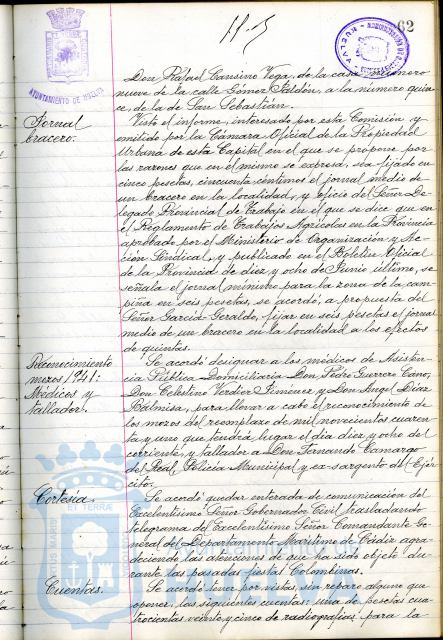 11-5
62
AYUNTAMIENTO DE HUELVA
Don Rafael Cansino Vega, de la casa número
nueve de la calle Gómez Jaldón, a la número quin-
ce, de la de San Sebastián.
Jornal
bracero.
Visto el informe, interesado por esta Comisión y
emitido por la Cámara Oficial de la Propiedad
Urbana de esta Capital en el que se propone por
las razones que en el mismo se expresa, sea fijado en
cinco pesetas, cincuenta céntimos el jornal medio de
un bracero en la localidad, y oficio del Señor De-
legado Provincial de Trabajo en el que se dice que en
el Reglamento de Trabajos Agrícolas en la Provincia
aprobado por el Ministerio de Organización y Ac-
ción Sindical, y publicado en el Boletín Oficial
de la Provincia de diez y ocho de Junio último, se
señala el jornal mínimo para la zona de la cam-
piña en seis pesetas, se acordó, a propuesta del
Señor García Geraldo, fijar en seis pesetas el jornal
medio de un bracero en la localidad a los efectos
de quintas.
Reconocimiento
mozos 1941.
Médicos y
tallador.
Se acordó designar a los médicos de Asisten-
cia Pública Domiciliaria Don Pedro Guerrero Cano,
Don Celestino Verdier Jiménez y Don Angel Díaz
para llevar a cabo el reconocimiento de
los mozos del reemplazo de mil novecientos cuaren-
ta y uno que tendrá lugar el día diez y ocho del
corriente, y tallador a Don Fernando Camargo
del Real, Policía Municipal y ex-sargento del Ejér-
cito.
Cortesía.
Se acordó quedar enterada de comunicación del
Excelentísimo Señor Gobernador Civil trasladando
telegrama del Excelentísimo Señor Comandante Ge-
neral del Departamento Marítimo de Cádiz agra-
deciendo las atenciones de que ha sido objeto du-
rante las pasadas fiestas Colombinas.
Cuentas.
Se acordó tener por vistas, sin reparo alguno que
oponer, las siguientes cuentas: una de pesetas cua-
trocientas veinte y cinco de radiografías para la